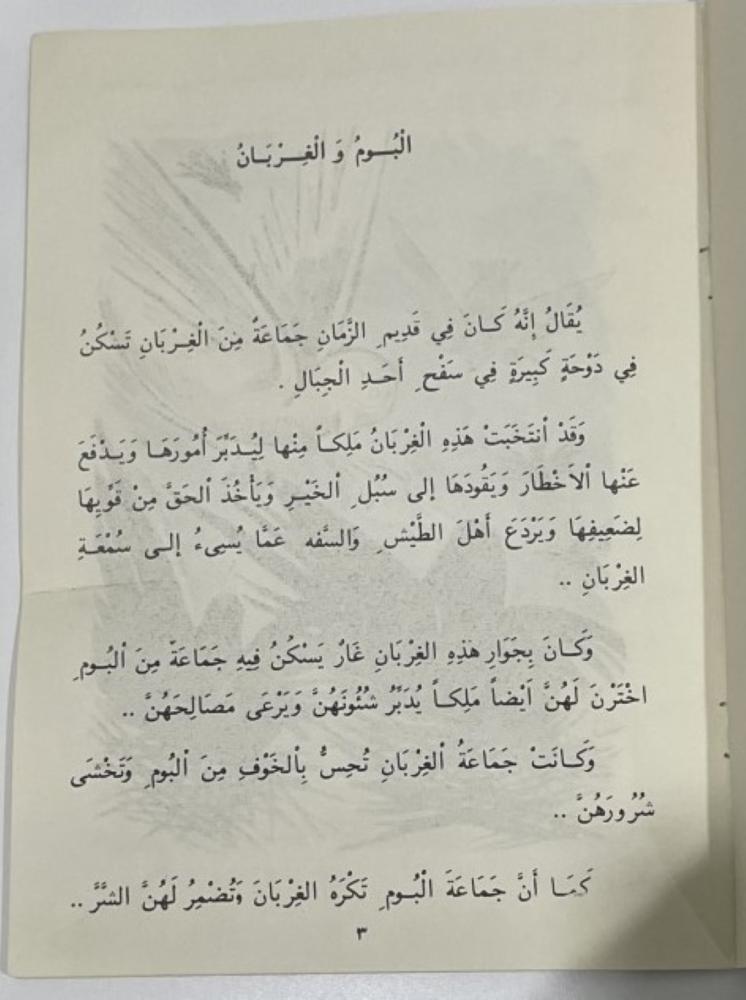 الْبُـــومُ وَ الْغِـــرْبَـانُ
يُقَالُ إِنَّهُ كَـانَ فِي قَدِيمِ الزَّمَانِ جَمَاعَةٌ مِنَ الْغِـرْبَانِ تَسْكُنُ
فِي دَوْحَةٍ كَبِيرَةٍ فِي سَفْحِ أَحَـدِ الْجِبَالِ .
وَقَدْ انتَخَبَتْ هَذِهِ الْغِرْبَانُ مَلِكـاً مِنْها لِيُـدَبِّرَ أُمُورَهَـا وَيَـدْفَعَ
عَنْها الأَخْطَارَ وَيَقُودَهَا إلى سُبُلِ الخَيْـرِ وَيَأْخُذَ الحَقَّ مِنْ قَوِّيِهَا
لِضَعِيفِهَا وَيَرْدَعَ أَهْلَ الطَّيْشِ وَالسَّفه عَمَّا يُسِىءُ إلـى سُمْعَـةِ
الغِرْبَانِ ..
وَكَـانَ بِجَوَارِ هَذِهِ الغِرْبَانِ غَارٌ يَسْكُنُ فِيهِ جَمَاعَةٌ مِنَ البُومِ
اخْتَرْنَ لَهُنَّ اَيْضاً مَلِكـاً يُدَبِّرُ شُئُونَهُنَّ وَيَرْعَى مَصَالِحَهُنَّ ..
وَكَـانَتْ جَمَاعَةُ الغِرْبَانِ تُحِسُّ بِالخَوْفِ مِنَ البُومِ وَتَخْشَى
شُرُورَهُنَّ ..
كَمَـا أَنَّ جَمَاعَةَ الْبُـومِ تَكْرَهُ الغِرْبَانَ وَتُضْمِرُ لَهُنَّ الشَّرَّ ..
٣